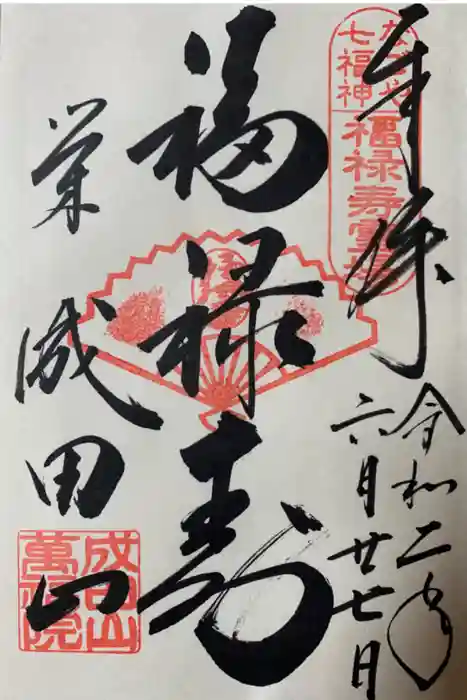 奉拝
令和二年
六月廿七日
なごや
七福神
福禄寿霊場
福禄寿
栄
成田山
成田山
萬福院